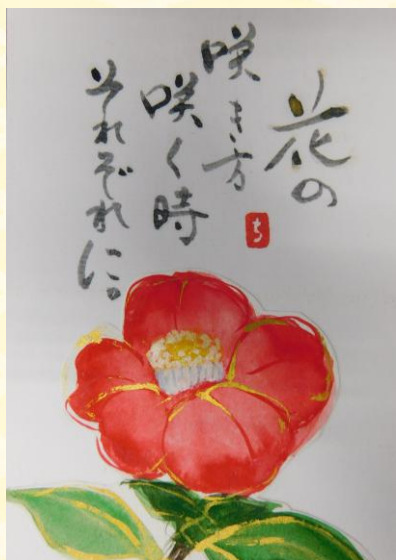 花の
咲き方
咲く時
それぞれに。
ち